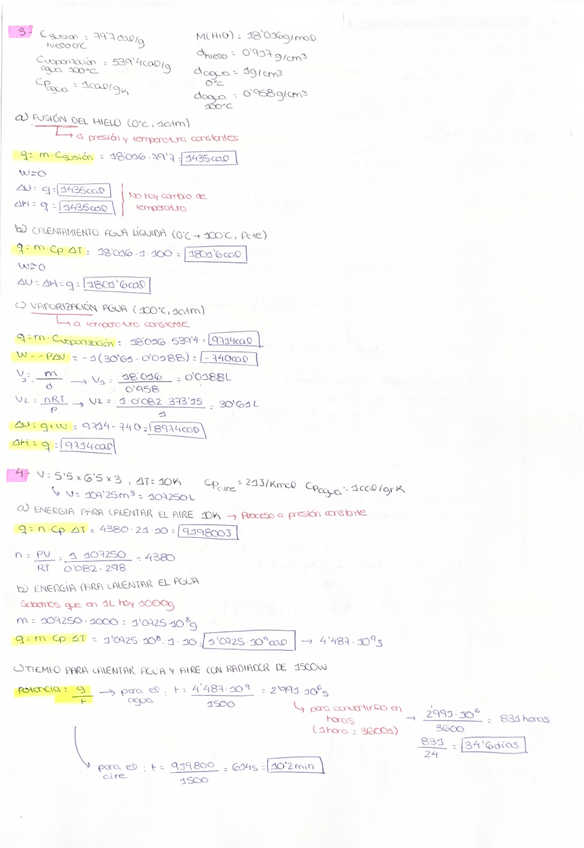 3- Cfusión = 79'7cal/g
hielo 0ºC
Cvaporización = 539'4cal/g
agua 100ºC
Cp agua = 1cal/gK
M(H2O) : 18'016g/mol
dhielo = 0'917g/cm³
dagua = 1g/cm³
0ºC
dagua = 0'958g/cm³
100ºC
a) FUSIÓN DEL HIELO (0ºC, 1atm)
↳ a presión y temperatura constantes
q = m·Cfusión = 18'016·79'7 = 1435cal
W=0
ΔU = q = 1435cal
ΔH = q = 1435cal
No hay cambio de
temperatura
b) CALENTAMIENTO AGUA LÍQUIDA (0ºC → 100ºC, P cte)
q = m·Cp·ΔT = 18'016·1·100 = 1801'6cal
W=0
ΔU = ΔH = q = 1801'6cal
c) VAPORIZACIÓN AGUA (100ºC, 1atm)
↳ a temperatura constante
q = m·Cvaporización = 18'016·539'4 = 9714cal
W = -PΔV = -1(30'61-0'0188) = -740cal
V1 = m/d → V1 = 18'016/0'958 = 0'0188L
V2 = nRT/P → V2 = 1·0'082·373'15/1 = 30'61L
ΔU = q+W = 9714-740 = 8974cal
ΔH = q = 9714cal
4- V = 5'5 x 6'5 x 3, ΔT = 10K Cp aire = 21J/Kmol Cp agua = 1cal/grK
↳ V = 107'25m³ = 107250L
a) ENERGÍA PARA CALENTAR EL AIRE 10K → Proceso a presión constante
q = n·Cp·ΔT = 4380·21·10 = 919800J
n = PV/RT = 1·107250/0'082·298 = 4380
b) ENERGÍA PARA CALENTAR EL AGUA
Sabemos que en 1L hay 1000g
m = 107250·1000 = 1'0725·10⁸g
q = m·Cp·ΔT = 1'0725·10⁸·1·10 = 1'0725·10⁹cal → 4'487·10⁹J
c) TIEMPO PARA CALENTAR AGUA Y AIRE CON RADIADOR DE 1500W
Potencia = q/t → para el agua : t = 4'487·10⁹/1500 = 2'991·10⁶s
↳ para convertirlo en
horas
(1 hora = 3600s)
→ 2'991·10⁶/3600 = 831 horas
831/24 = 34'6 días
para el aire : t = 919800/1500 = 614s = 10'2min